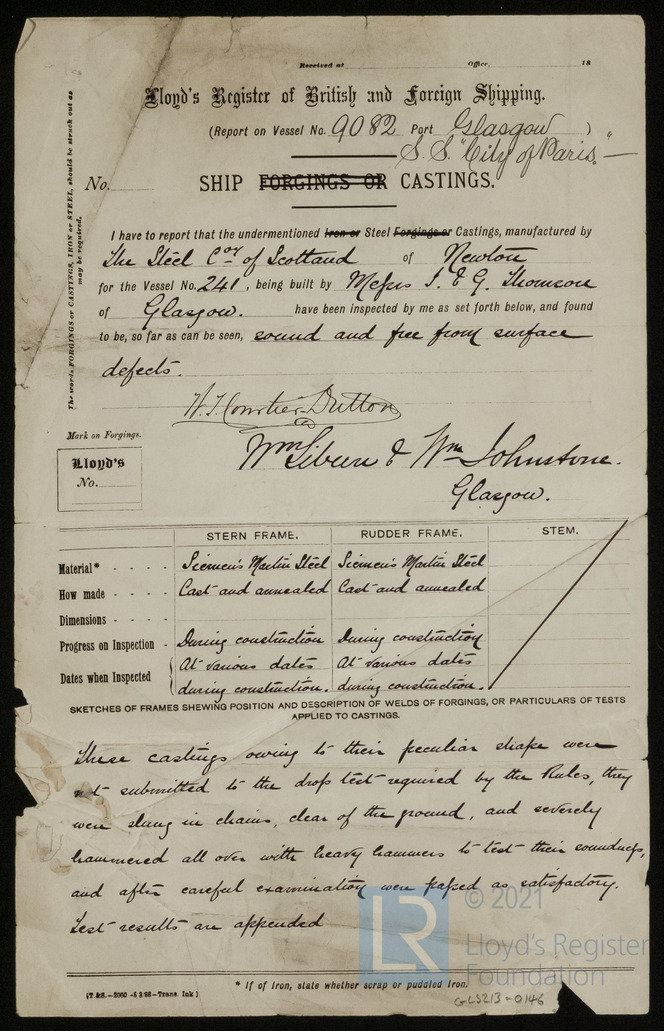 Received at Office, 18
Lloyd's Register of British and Foreign Shipping.
(Report on Vessel No. 9082 Port Glasgow )
S.S. "City of Paris." —
No. SHIP FORGINGS OR CASTINGS.
The words FORGINGS or CASTINGS, IRON or STEEL, should be struck out as
may be required.
I have to report that the undermentioned Iron or Steel Forgings or Castings, manufactured by
The Steel Coy of Scotland of Newton
for the Vessel No. 241, being built by Messrs J. & G. Thomson
of Glasgow. have been inspected by me as set forth below, and found
to be, so far as can be seen, sound and free from surface
defects.
W. J. Courtier-Dutton
Mark on Forgings.
Wm & Wm Johnstone.
Lloyd's
No.
Glasgow.
STERN FRAME. RUDDER FRAME. STEM.
Material* - - - - Siemen's Martin Steel Siemen's Martin Steel
How made - - - - Cast and annealed Cast and annealed
Dimensions - - - -
Progress on Inspection - During construction During construction
Dates when Inspected At various dates At various dates
during construction. during construction.
SKETCHES OF FRAMES SHEWING POSITION AND DESCRIPTION OF WELDS OF FORGINGS, OR PARTICULARS OF TESTS
APPLIED TO CASTINGS.
These castings owing to their peculiar shape were
not submitted to the drop test required by the Rules, they
were slung in chains, clear of the ground, and severely
hammered all over with heavy hammers to test their soundness,
and after careful examination were passed as satisfactory.
Test results are appended
© 2021
LR Lloyd's Register
Foundation
* If of Iron, state whether scrap or puddled Iron.
[T.&S.—2000—5 3/88—Trans. Ink]
GLS213-0146